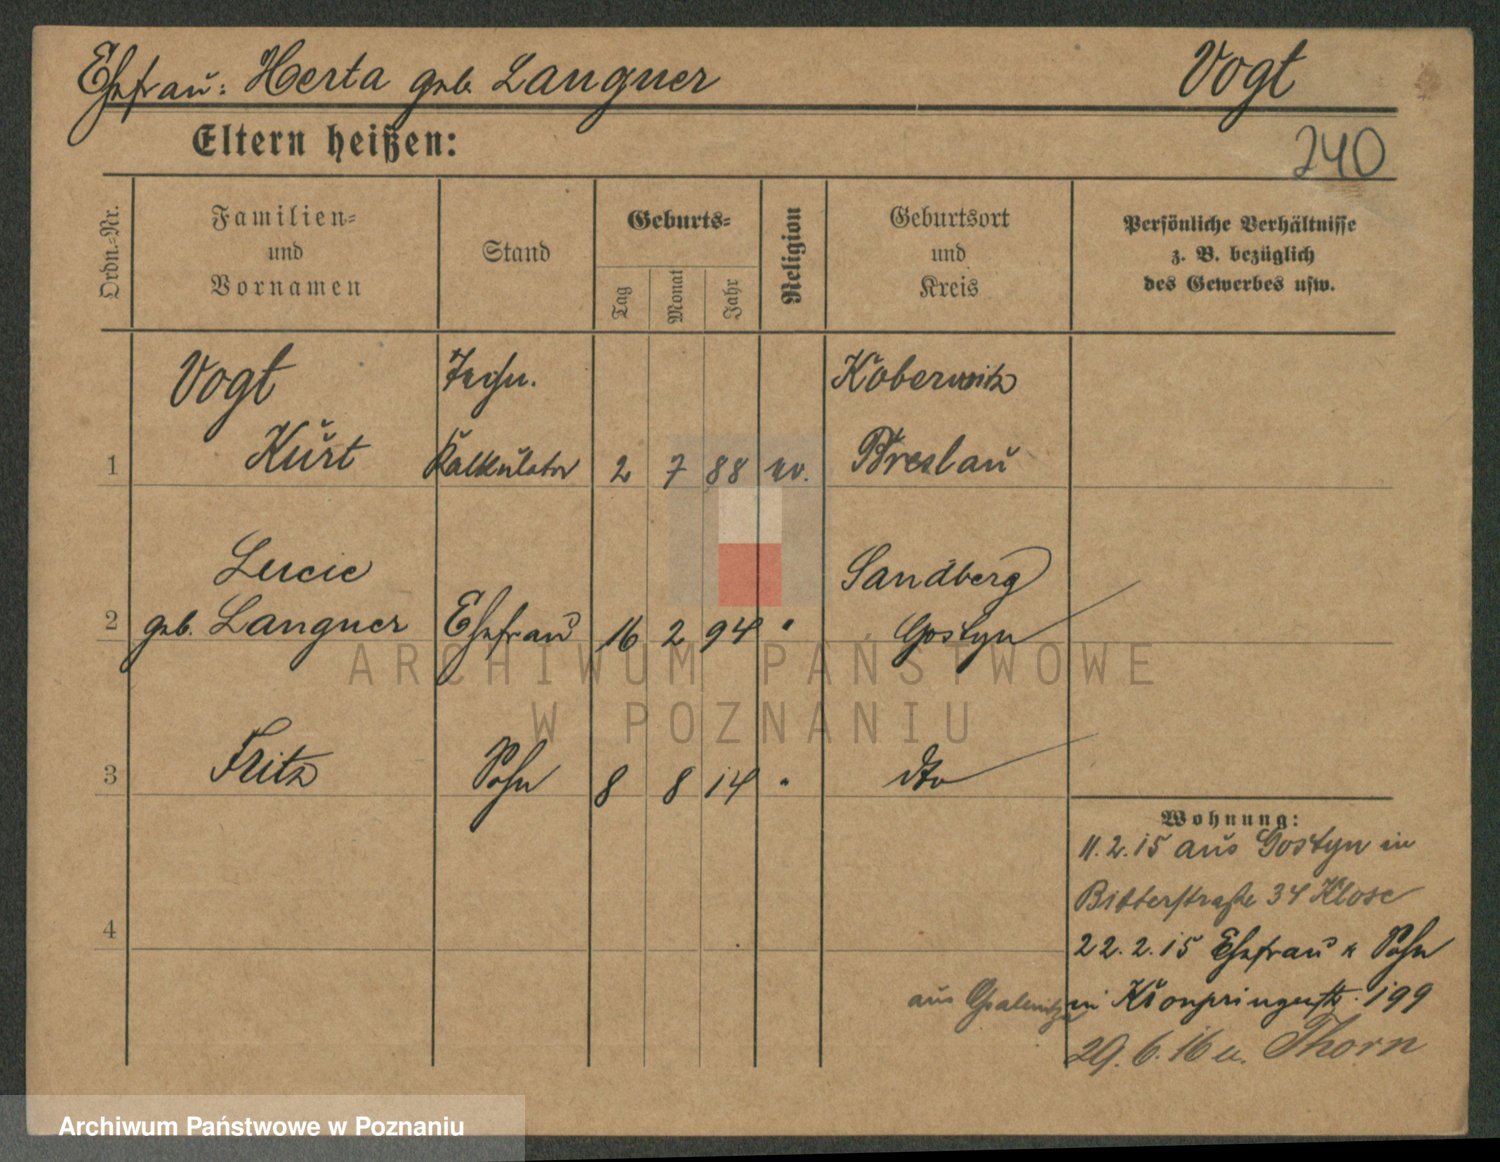 Ehefrau: Herta geb. Langner Vogt
Eltern heißen: 240
Ordn.-Nr.
Familien-
und
Vornamen
Stand
Geburts-
Tag
Monat
Jahr
Religion
Geburtsort
und
Kreis
Persönliche Verhältnisse
z. B. bezüglich
des Gewerbes usw.
Vogt Techn. Koberwitz
1 Kurt Kalkulator 2 7 88 ev. Breslau
Lucie Sandberg
2 geb. Langner Ehefrau 16 2 94 " Gostyn
3 Fritz Sohn 8 8 14 " dto
4
Wohnung:
11.2.15 aus Gostyn in
Bitterstraße 34 Klose
22.2.15 Ehefrau & Sohn
aus in Kronprinzenstr. 199
29.6.16 n. Thorn
ARCHIWUM PAŃSTWOWE
W POZNANIU
Archiwum Państwowe w Poznaniu